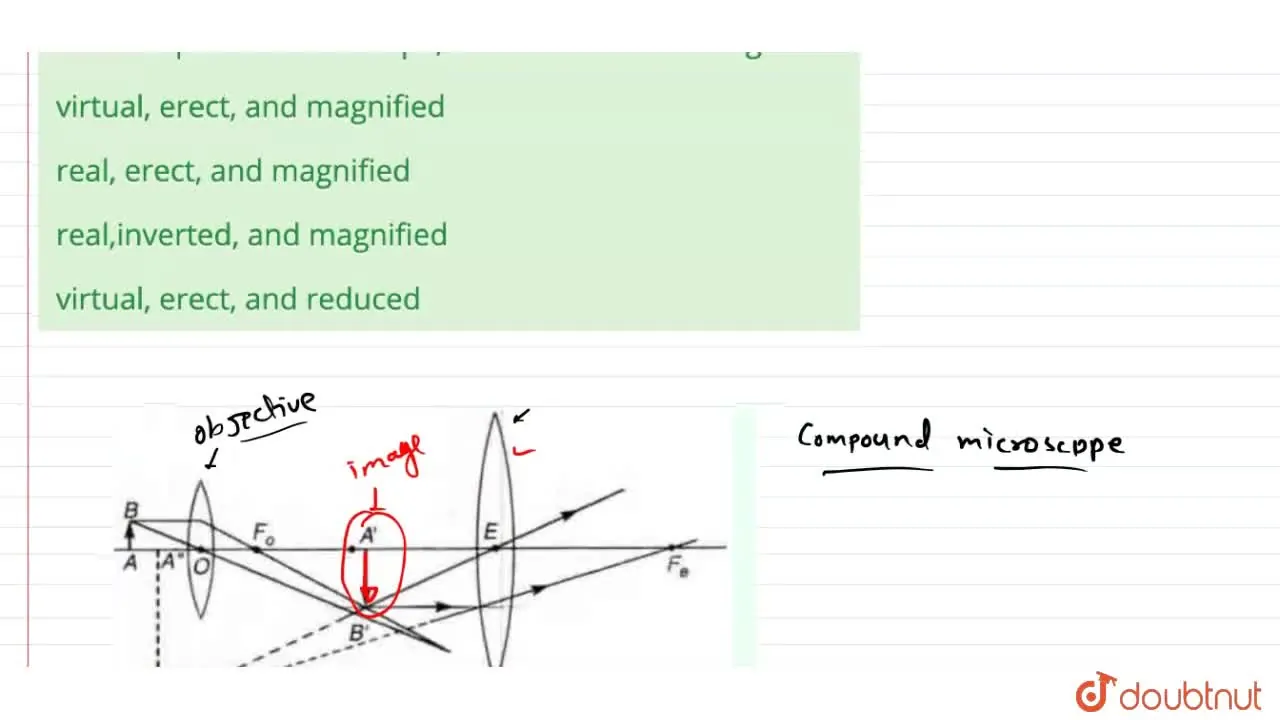 virtual, erect, and magnified
real, erect, and magnified
real,inverted, and magnified
virtual, erect, and reduced
objective
image
Compound microscope
B
Fo
A'
E
A
A"
O
Fe
B'
doubtnut